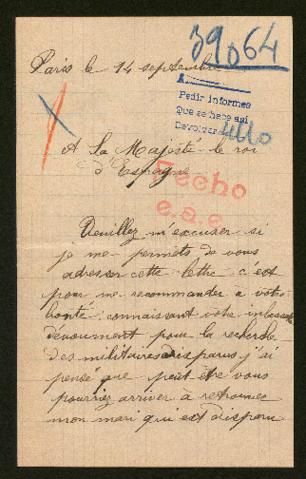 39064
Paris le 14 septembre
Pedir informes
Que se hace así
Devolver
A Sa Majesté le roi
d'Espagne
Hecho
e.a.e.
Veuillez m'excuser si
je me permets de vous
adresser cette lettre c'est
pour me recommander à votre
bonté. connaissant votre inlassable
dévouement pour la recherche
des militaires disparus j'ai
pensé que peut être vous
pourriez arriver à retrouver
mon mari qui est disparu